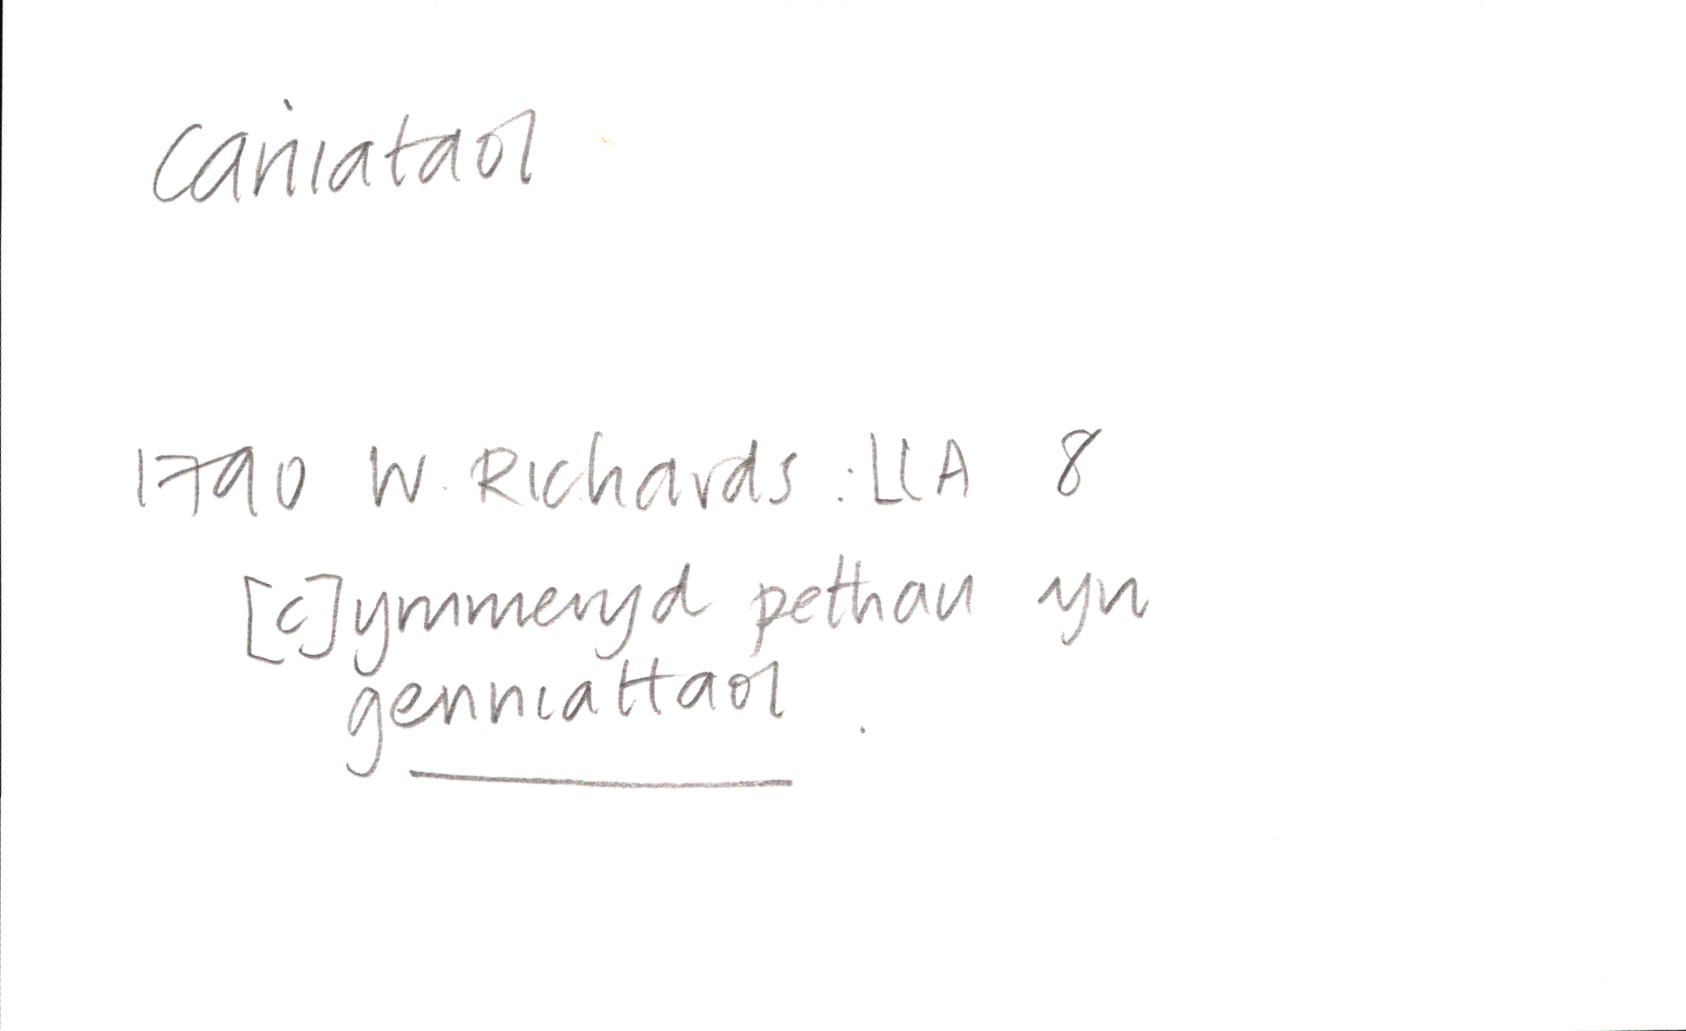 caniataol
1790 W. Richards: LlA 8
[c]ymmeryd pethau yn
genniattaol.